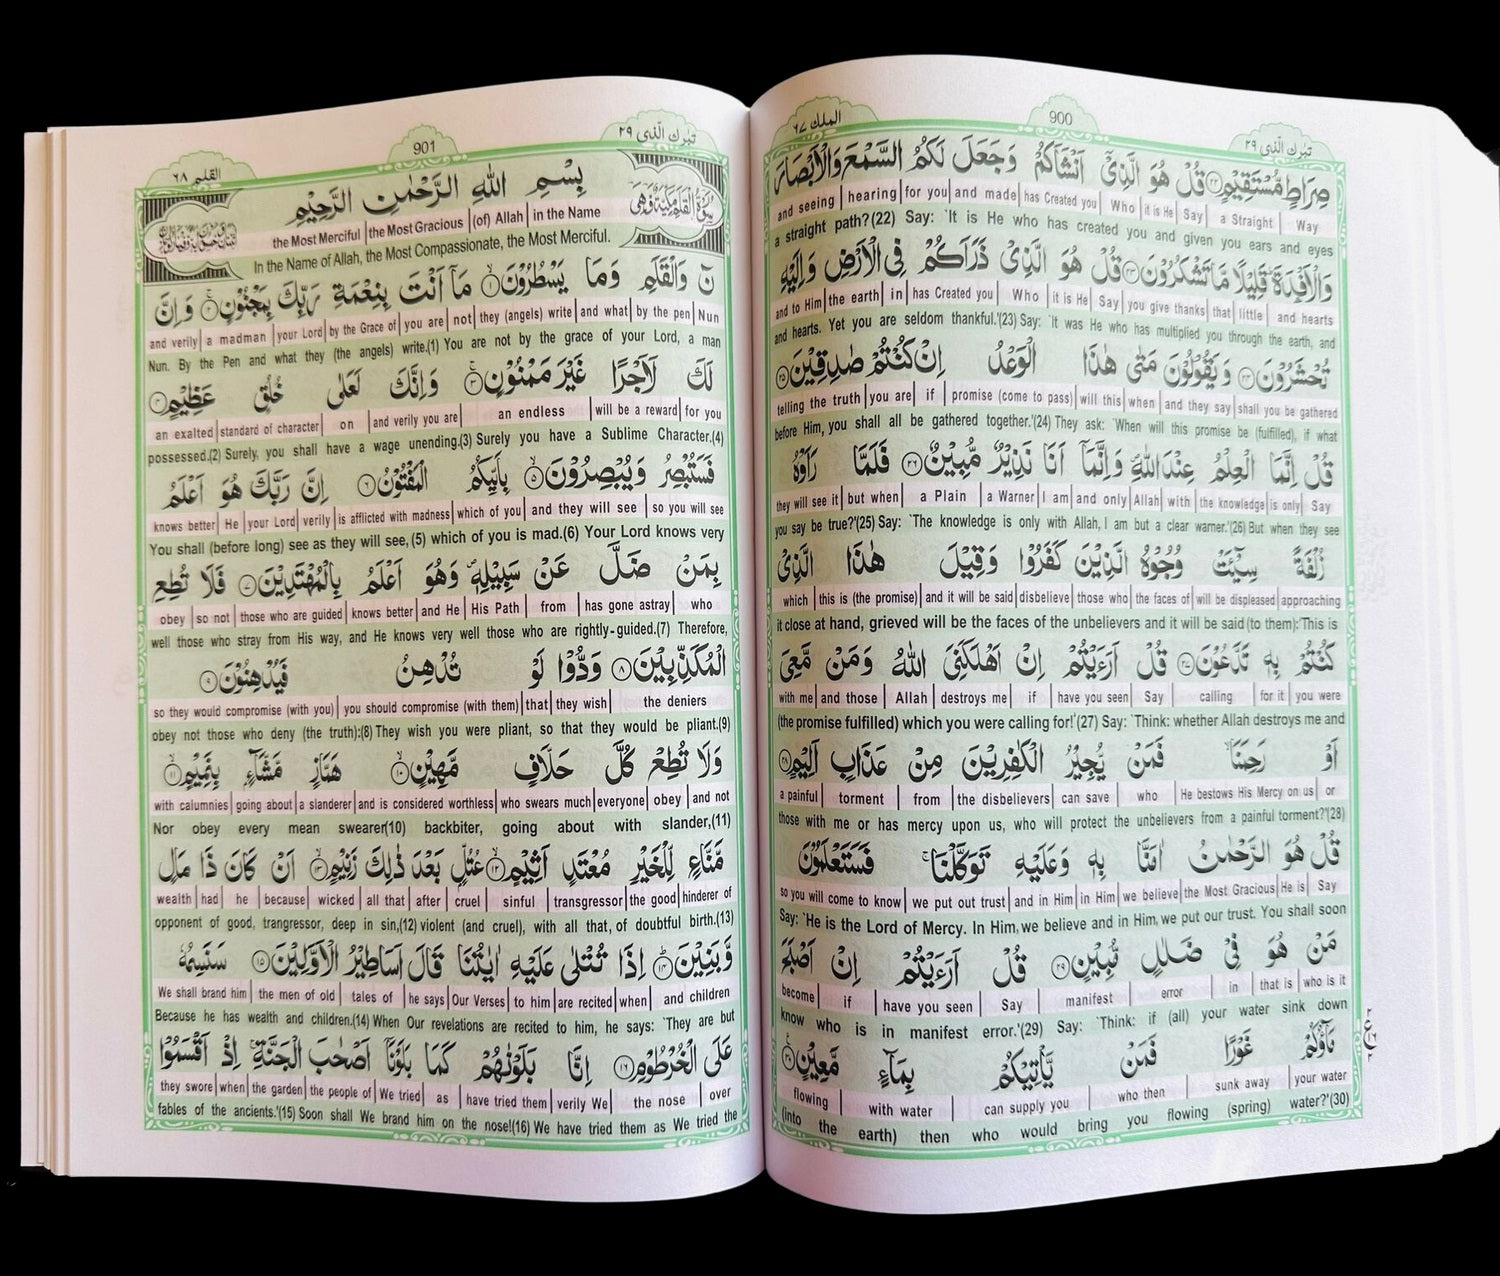 الملك ٦٧
900
تبٰرك الّذی ٢٩
صِرَاطٍ مُّسْتَقِيْمٍ ٢٢ قُلْ هُوَ الَّذِىْٓ اَنْشَاَكُمْ وَجَعَلَ لَكُمُ السَّمْعَ وَالْاَبْصَارَ
and seeing | hearing | for you | and made | has Created you | Who | it is He | Say | a Straight | Way
a straight path?(22) Say: `It is He who has created you and given you ears and eyes
وَالْاَفْـِٕدَةَ ؕ قَلِيْلًا مَّا تَشْكُرُوْنَ ٢٣ قُلْ هُوَ الَّذِىْ ذَرَاَكُمْ فِى الْاَرْضِ وَاِلَيْهِ
and to Him | the earth | in | has Created you | Who | it is He | Say | you give thanks | that | little | and hearts
and hearts. Yet you are seldom thankful.'(23) Say: `It was He who has multiplied you through the earth, and
تُحْشَرُوْنَ ٢٤ وَيَقُوْلُوْنَ مَتٰى هٰذَا الْوَعْدُ اِنْ كُنْتُمْ صٰدِقِيْنَ ٢٥
telling the truth | you are | if | promise (come to pass) | will this | when | and they say | shall you be gathered
before Him, you shall all be gathered together.'(24) They ask: `When will this promise be (fulfilled), if what
قُلْ اِنَّمَا الْعِلْمُ عِنْدَ اللّٰهِ وَاِنَّمَاۤ اَنَا نَذِيْرٌ مُّبِيْنٌ ٢٦ فَلَمَّا رَاَوْهُ
they will see it | but when | a Plain | a Warner | I am | and only | Allah | with | the knowledge | is only | Say
you say be true?'(25) Say: `The knowledge is only with Allah, I am but a clear warner.'(26) But when they see
زُلْفَةً سِيْٓـَٔتْ وُجُوْهُ الَّذِيْنَ كَفَرُوْا وَقِيْلَ هٰذَا الَّذِىْ
which | this is (the promise) | and it will be said | disbelieve | those who | the faces of | will be displeased | approaching
it close at hand, grieved will be the faces of the unbelievers and it will be said (to them):'This is
كُنْتُمْ بِهٖ تَدَّعُوْنَ ٢٧ قُلْ اَرَءَيْتُمْ اِنْ اَهْلَكَنِىَ اللّٰهُ وَمَنْ مَّعِىَ
with me | and those | Allah | destroys me | if | have you seen | Say | calling | for it | you were
(the promise fulfilled) which you were calling for!'(27) Say: `Think: whether Allah destroys me and
اَوْ رَحِمَنَا ۙ فَمَنْ يُّجِيْرُ الْكٰفِرِيْنَ مِنْ عَذَابٍ اَلِيْمٍ ٢٨
a painful | torment | from | the disbelievers | can save | who | He bestows His Mercy on us | or
those with me or has mercy upon us, who will protect the unbelievers from a painful torment?'(28)
قُلْ هُوَ الرَّحْمٰنُ اٰمَنَّا بِهٖ وَعَلَيْهِ تَوَكَّلْنَا ۚ فَسَتَعْلَمُوْنَ
so you will come to know | we put out trust | and in Him | in Him | we believe | the Most Gracious | He is | Say
Say: `He is the Lord of Mercy. In Him, we believe and in Him, we put our trust. You shall soon
مَنْ هُوَ فِىْ ضَلٰلٍ مُّبِيْنٍ ٢٩ قُلْ اَرَءَيْتُمْ اِنْ اَصْبَحَ
become | if | have you seen | Say | manifest | error | in | that is | who is it
know who is in manifest error.'(29) Say: `Think: if (all) your water sink down
مَآؤُكُمْ غَوْرًا فَمَنْ يَّاْتِيْكُمْ بِمَآءٍ مَّعِيْنٍ ٣٠
flowing | with water | can supply you | who then | sunk away | your water
(into the earth) then who would bring you flowing (spring) water?'(30)
القلم ٦٨
901
تبٰرك الّذی ٢٩
بِسْمِ اللّٰهِ الرَّحْمٰنِ الرَّحِيْمِ
the Most Merciful | the Most Gracious | (of) Allah | in the Name
In the Name of Allah, the Most Compassionate, the Most Merciful.
نٓ وَالْقَلَمِ وَمَا يَسْطُرُوْنَ ١ مَاۤ اَنْتَ بِنِعْمَةِ رَبِّكَ بِمَجْنُوْنٍ ٢ وَاِنَّ
and verily | a madman | your Lord | by the Grace of | you are | not | they (angels) write | and what | by the pen | Nun
Nun. By the Pen and what they (the angels) write.(1) You are not by the grace of your Lord, a man
لَكَ لَاَجْرًا غَيْرَ مَمْنُوْنٍ ٣ وَاِنَّكَ لَعَلٰى خُلُقٍ عَظِيْمٍ ٤
an exalted | standard of character | on | and verily you are | an endless | will be a reward | for you
possessed.(2) Surely, you shall have a wage unending.(3) Surely you have a Sublime Character.(4)
فَسَتُبْصِرُ وَيُبْصِرُوْنَ ٥ بِاَيِّكُمُ الْمَفْتُوْنُ ٦ اِنَّ رَبَّكَ هُوَ اَعْلَمُ
knows better | He | your Lord | verily | is afflicted with madness | which of you | and they will see | so you will see
You shall (before long) see as they will see,(5) which of you is mad.(6) Your Lord knows very
بِمَنْ ضَلَّ عَنْ سَبِيْلِهٖ وَهُوَ اَعْلَمُ بِالْمُهْتَدِيْنَ ٧ فَلَا تُطِعِ
obey | so not | those who are guided | knows better | and He | His Path | from | has gone astray | who
well those who stray from His way, and He knows very well those who are rightly-guided.(7) Therefore,
الْمُكَذِّبِيْنَ ٨ وَدُّوْا لَوْ تُدْهِنُ فَيُدْهِنُوْنَ ٩
so they would compromise (with you) | you should compromise (with them) | that | they wish | the deniers
obey not those who deny (the truth):(8) They wish you were pliant, so that they would be pliant.(9)
وَلَا تُطِعْ كُلَّ حَلَّافٍ مَّهِيْنٍ ١٠ هَمَّازٍ مَّشَّآءٍ بِنَمِيْمٍ ١١
with calumnies | going about | a slanderer | and is considered worthless | who swears much | everyone | obey | and not
Nor obey every mean swearer(10) backbiter, going about with slander,(11)
مَّنَّاعٍ لِّلْخَيْرِ مُعْتَدٍ اَثِيْمٍ ١٢ عُتُلٍّ بَعْدَ ذٰلِكَ زَنِيْمٍ ١٣ اَنْ كَانَ ذَا مَالٍ
wealth | had | he | because | wicked | all that | after | cruel | sinful | transgressor | the good | hinderer of
opponent of good, trangressor, deep in sin,(12) violent (and cruel), with all that, of doubtful birth.(13)
وَّبَنِيْنَ ١٤ اِذَا تُتْلٰى عَلَيْهِ اٰيٰتُنَا قَالَ اَسَاطِيْرُ الْاَوَّلِيْنَ ١٥ سَنَسِمُهٗ
We shall brand him | the men of old | tales of | he says | Our Verses | to him | are recited | when | and children
Because he has wealth and children.(14) When Our revelations are recited to him, he says: `They are but
عَلَى الْخُرْطُوْمِ ١٦ اِنَّا بَلَوْنٰهُمْ كَمَا بَلَوْنَاۤ اَصْحٰبَ الْجَنَّةِ ۚ اِذْ اَقْسَمُوْا
they swore | when | the garden | the people of | We tried | as | have tried them | verily We | the nose | over
fables of the ancients.'(15) Soon shall We brand him on the nose!(16) We have tried them as We tried the